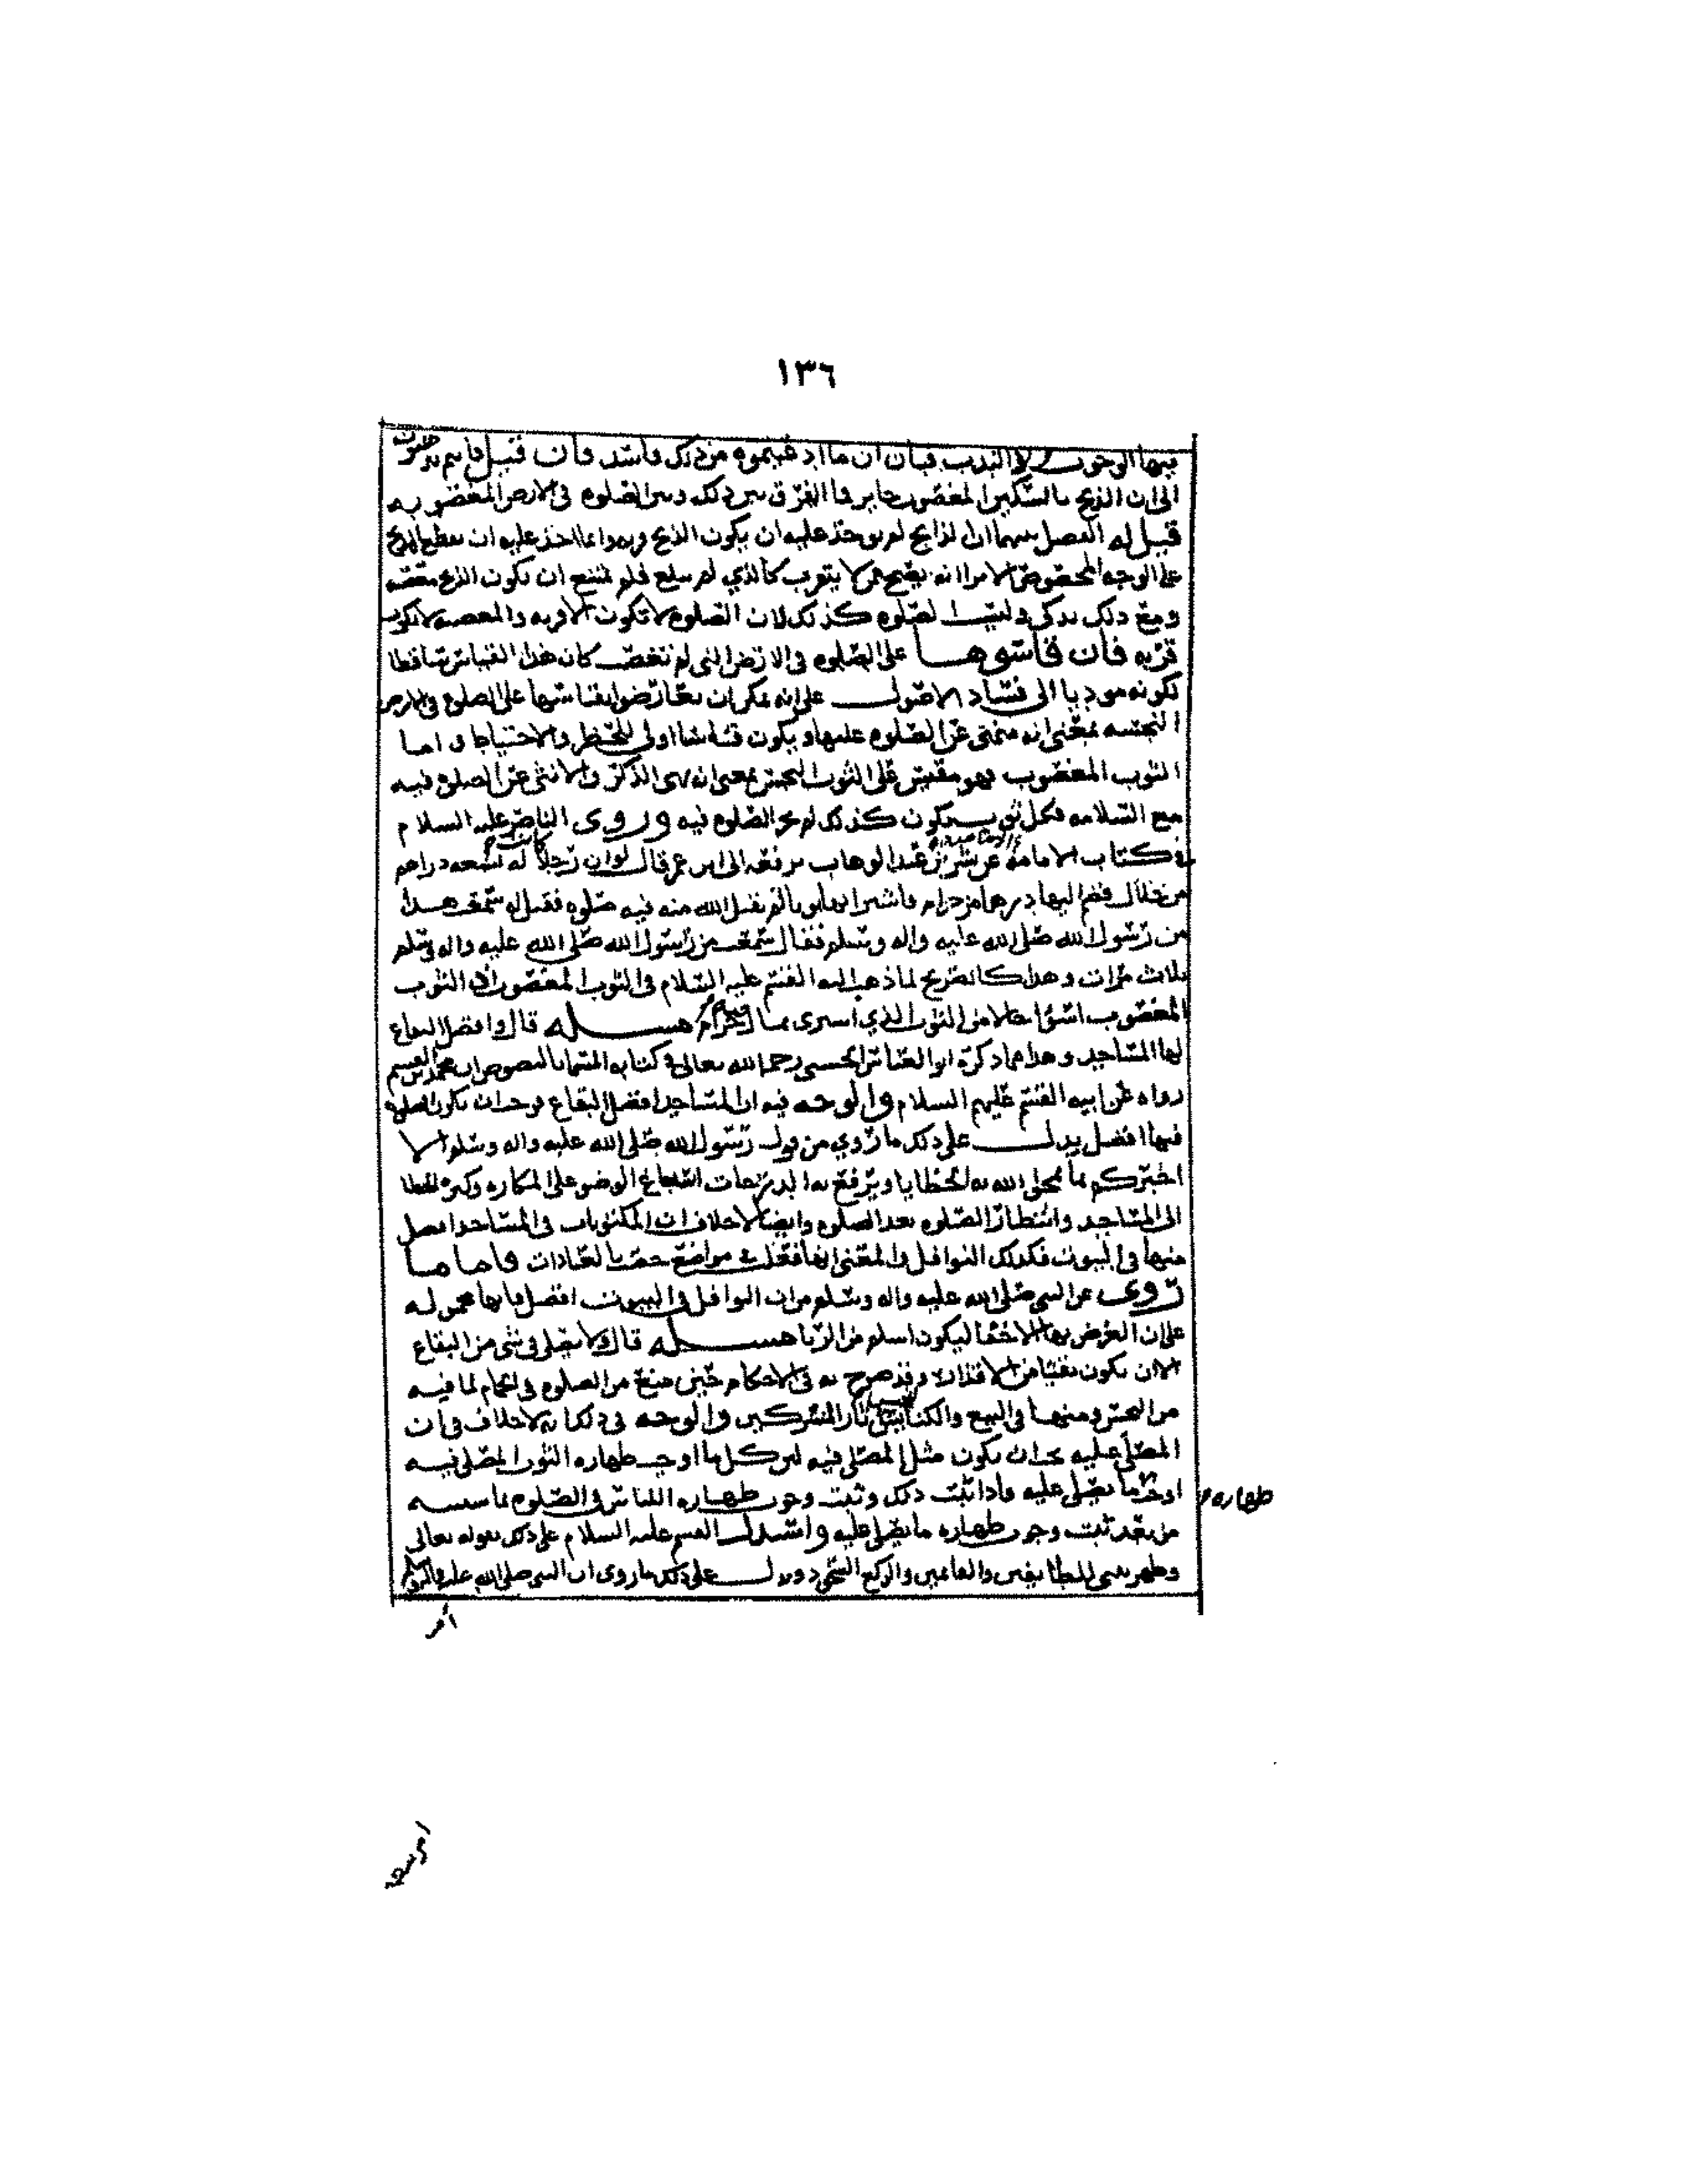 ١٣٦
فيها الوجوب ولا الندب فبان ان ما ادعيتموه من ذلك فاسد فان قيل فانتم تذهبون
الى ان الذبح بالسكين المغصوب جايز فما الفرق بين ذلك وبين الصلوه في الارض المغصوبه
قيل له الفصل بينهما ان الذابح لم يوخذ عليه ان يكون الذبح قربه وانما اخذ عليه ان يقطع الذبح
على الوجه المخصوص الا ترا انه يصح ممن لا يتقرب كالذي لم يبلغ فلم يمتنع ان يكون الذبح معصيه
ومع ذلك يذكى وليست الصلوه كذلك لان الصلوه لا تكون الا قربه والمعصيه لا تكون
قربه فان قاسوها على الصلوه في الارض التي لم تغصب كان هذا القياس ساقطا
لكونه موديا الى فساد الاصول على انه يمكن ان يعارضوا بقياسها على الصلوه في الارض
النجسه بمعنى انه منهي عن الصلوه عليها ويكون قياسنا اولى للحظر والاحتياط واما
الثوب المغصوب فهو مقيس على الثوب النجس بمعنى انه نهي الذكر والانثى عن الصلوه فيه
مع السلامه فكل ثوب يكون كذلك لم تجز الصلوه فيه وروى الناصر عليه السلام
في كتاب الامامه عن بشر بن عبد الوهاب يرفعه الى ابن عمر قال لو ان رجلا كانت له تسعه دراهم
من حلال فضم اليها درهما من حرام فاشترا بها ثوبا لم يقبل الله منه فيه صلوه فقيل له سمعت هذا
من رسول الله صلى الله عليه واله وسلم فقال سمعت من رسول الله صلى الله عليه واله وسلم
ثلاث مرات وهذا كالتصريح لما ذهب اليه القسم عليه السلام في الثوب المغصوب لان الثوب
المغصوب اسوا حالا من الثوب الذي اشترى بمال فيه حرام مسله قال وافضل البقاع
لها المساجد وهذا مما ذكره ابو العباس الحسني رحمه الله تعالى في كتابه المتما بالنصوص ان محمد بن القسم
رواه عن ابيه القسم عليهم السلام والوجه فيه ان المساجد افضل البقاع فوجب ان تكون الصلوه
فيها افضل يدل على ذلك ما روي من قول رسول الله صلى الله عليه واله وسلم الا
اخبركم بما يمحى الله به الخطايا ويرفع به الدرجات اسباغ الوضو على المكاره وكثره الخطا
الى المساجد وانتظار الصلوه بعد الصلوه وايضا لا خلاف ان المكتوبات في المساجد افضل
منها في البيوت فكذلك النوافل والمعنى انها فعلت في مواضع خصت بالعبادات فاما ما
روى عن النبي صلى الله عليه واله وسلم من ان النوافل في البيوت افضل فانها محموله
على ان الغرض بها الاخفا ليكون اسلم من الريا مسله قال ولا يصلى في شي من البقاع
الا ان يكون نقيا من الاقذار وقد صرح به في الاحكام حين منع من الصلوه في الحمام لما فيه
من النجس ومنها في البيع والكنايس المشركين والوجه في ذلك انه لا خلاف في ان
المصلى عليه يجب ان يكون مثل المصلى فيه لان كل ما اوجب طهاره الثوب المصلى فيه
اوجب طهاره ما يصلى عليه فاذا ثبت ذلك وثبت وجوب طهاره اللباس في الصلوه بما سنبينه
من بعد ثبت وجوب طهاره ما يصلى عليه واستدل القسم عليه السلام على ذلك بقوله تعالى
وطهر بيتي للطائفين والقايمين والركع السجود ويدل على ذلك ما روى ان النبي صلى الله عليه واله وسلم
امر